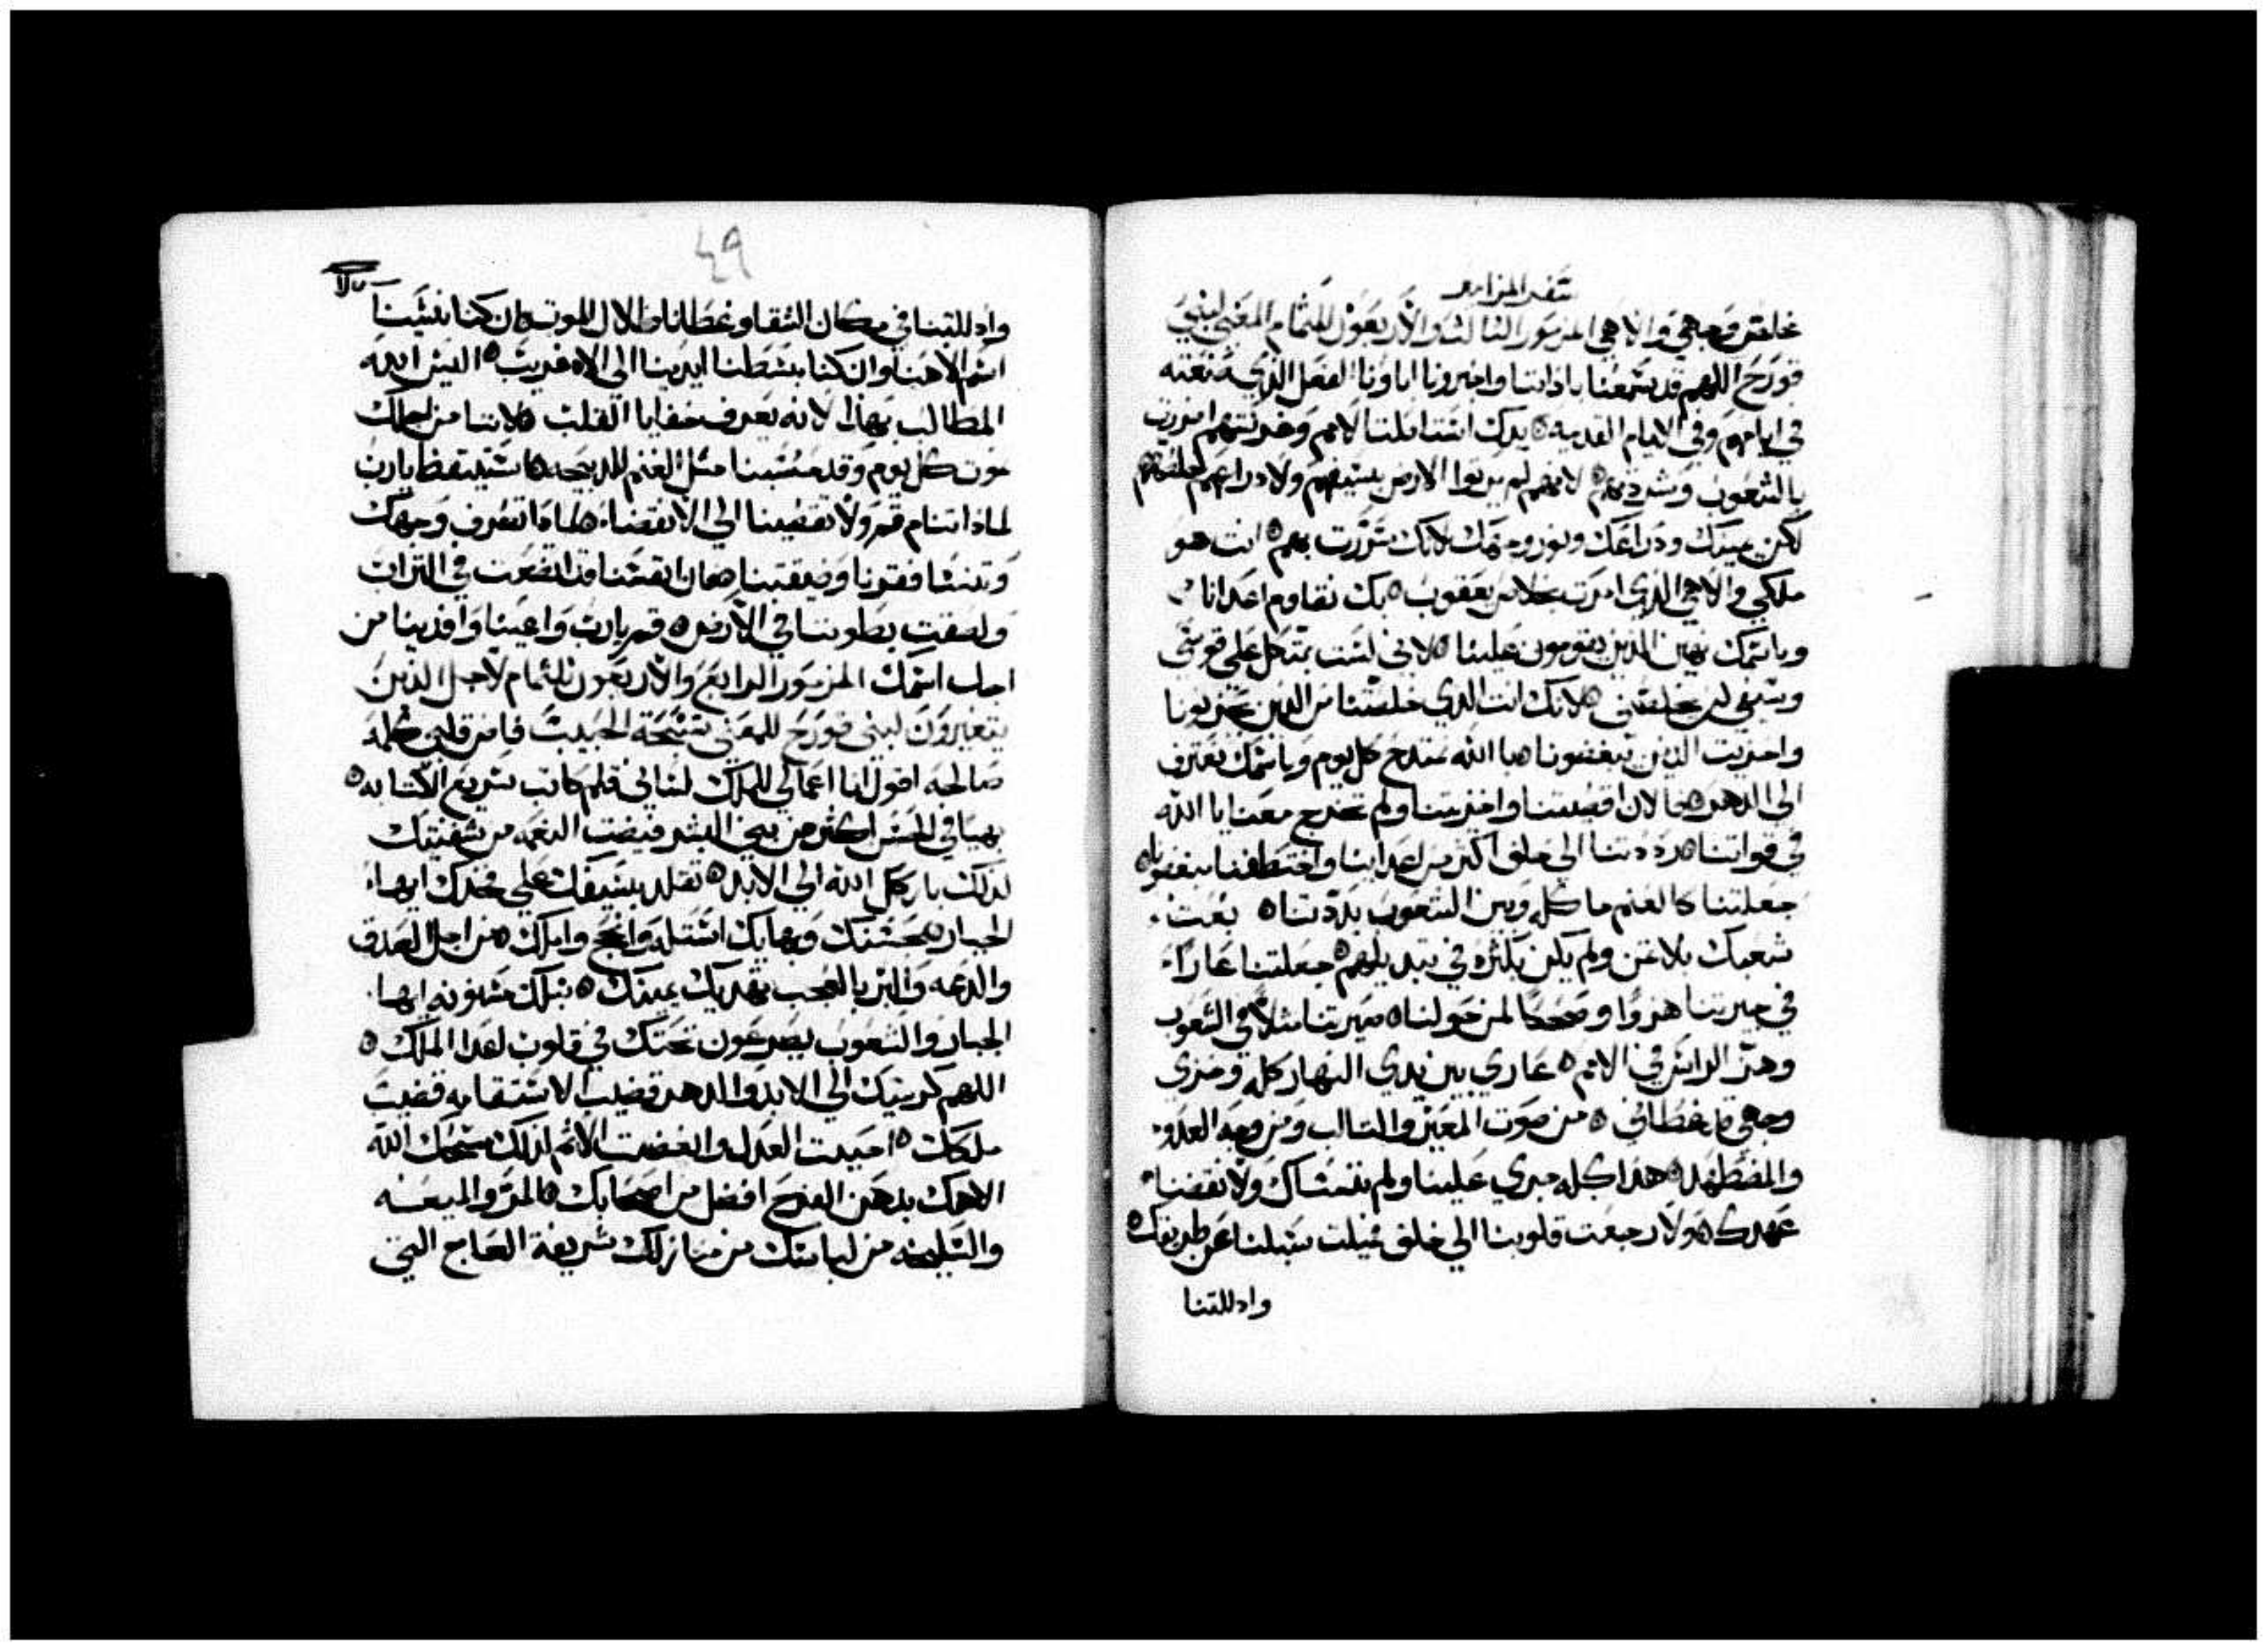 سفر المزامير
خلاص وجهي والاهي المزمور الثالث والاربعون للتمام المغني لبني
قورح اللهم قد سمعنا باداننا واخبرونا اباونا الفعل الذي صنعته
في ايامهم وفي الايام القديمه ٥ يدك استاصلت الامم وغرستهم اضريت
بالشعوب وشردتهم ٥ لانهم لم يرتوا الارض بسيفهم ولا دراعهم خلصتهم
لكن يمينك ودراعك ونور وجهك لانك سررت بهم ٥ انت هو
ملكي والاهي الذي امرت بخلاص يعقوب ٥ بك نقاوم اعدانا
وباسمك نهين الذين يقومون علينا ٥ لاني لست بمتكل على قوسي
وسيفي لن يخلصني ٥ لانك انت الذي خلصتنا من الذين يحزنونا
واخزيت الذين يبغضونا ها الله نمتدح كل يوم وباسمك نعترف
الى الدهر ٥ فالان اقصيتنا واخزيتنا ولم تخرج معنا يا الله
في قواتنا ٥ رددتنا الى خلف اكثر من اعداينا واختطفنا مبغضونا ٥
جعلتنا كالغنم ماكله وبين الشعوب بددتنا ٥ بعت
شعبك بلا ثمن ولم يكن بكثره في تبديلهم ٥ جعلتنا عارا
في جيرتنا هزوا وضحكا لمن حولنا ٥ صيرتنا مثلا في الشعوب
وهز الراس في الامم ٥ عاري بين يدي النهار كله وخزي
وجهي قد غطاني ٥ من صوت المعير والسالب ومن وجه العدو
والمضطهد ٥ هذا كله جري علينا ولم ننساك ولا نقضنا
عهدك ٥ ولا رجعت قلوبنا الي خلف ميلت سبلنا عن طريقك ٥
وادللتنا
٤٩
وادللتنا في مكان الشقا وغطانا ظلال الموت وان كنا نسينا
اسم الاهنا وان كنا بسطنا ايدينا الى الاه غريب ٥ اليس الله
المطالب بهذا لانه يعرف خفايا القلب ٥ لاننا من اجلك
نموت كل يوم وقد حسبنا مثل الغنم للدبيحه ٥ استيقظ يارب
لماذا تنام قم ولا تقصينا الي الانقضاء لماذا تصرف وجهك
وتنسا فقرنا وضيقتنا ها ان انفسنا قد اتضعت في التراب
ولصقت بطوننا في الارض ٥ قم يارب واعينا وافدينا من
اجل اسمك المزمور الرابع والاربعون للتمام لاجل الذين
يتغيرون لبني قورح للمغني تسبحة الحبيب فاض قلبي كلمه
صالحه اقول انا اعمالي للملك لساني قلم كاتب سريع الكتابه ٥
بهيا في الحسن اكثر من بني البشر فيضت النعمه من شفتيك
لذلك باركك الله الي الابد ٥ تقلد بسيفك علي فخدك ايها
الجبار ٥ بحسنك وبهايك استله وانجح واملك ٥ من اجل العدق
والدعه والبر بالعجب تهديك يمينك ٥ نبلك مسنونه ايها
الجبار والشعوب يصرعون تحتك في قلوب اعدا الملك ٥
اللهم كرسيك الي الابد والدهر قضيب الاستقامه قضيب
ملكك ٥ احببت العدل وابغضت الاثم لذلك مسحك الله
الاهك بدهن الفرح افضل من اصحابك ٥ المر والميعه
والسليخه من لباسك من منازلك شريفة العاج التي